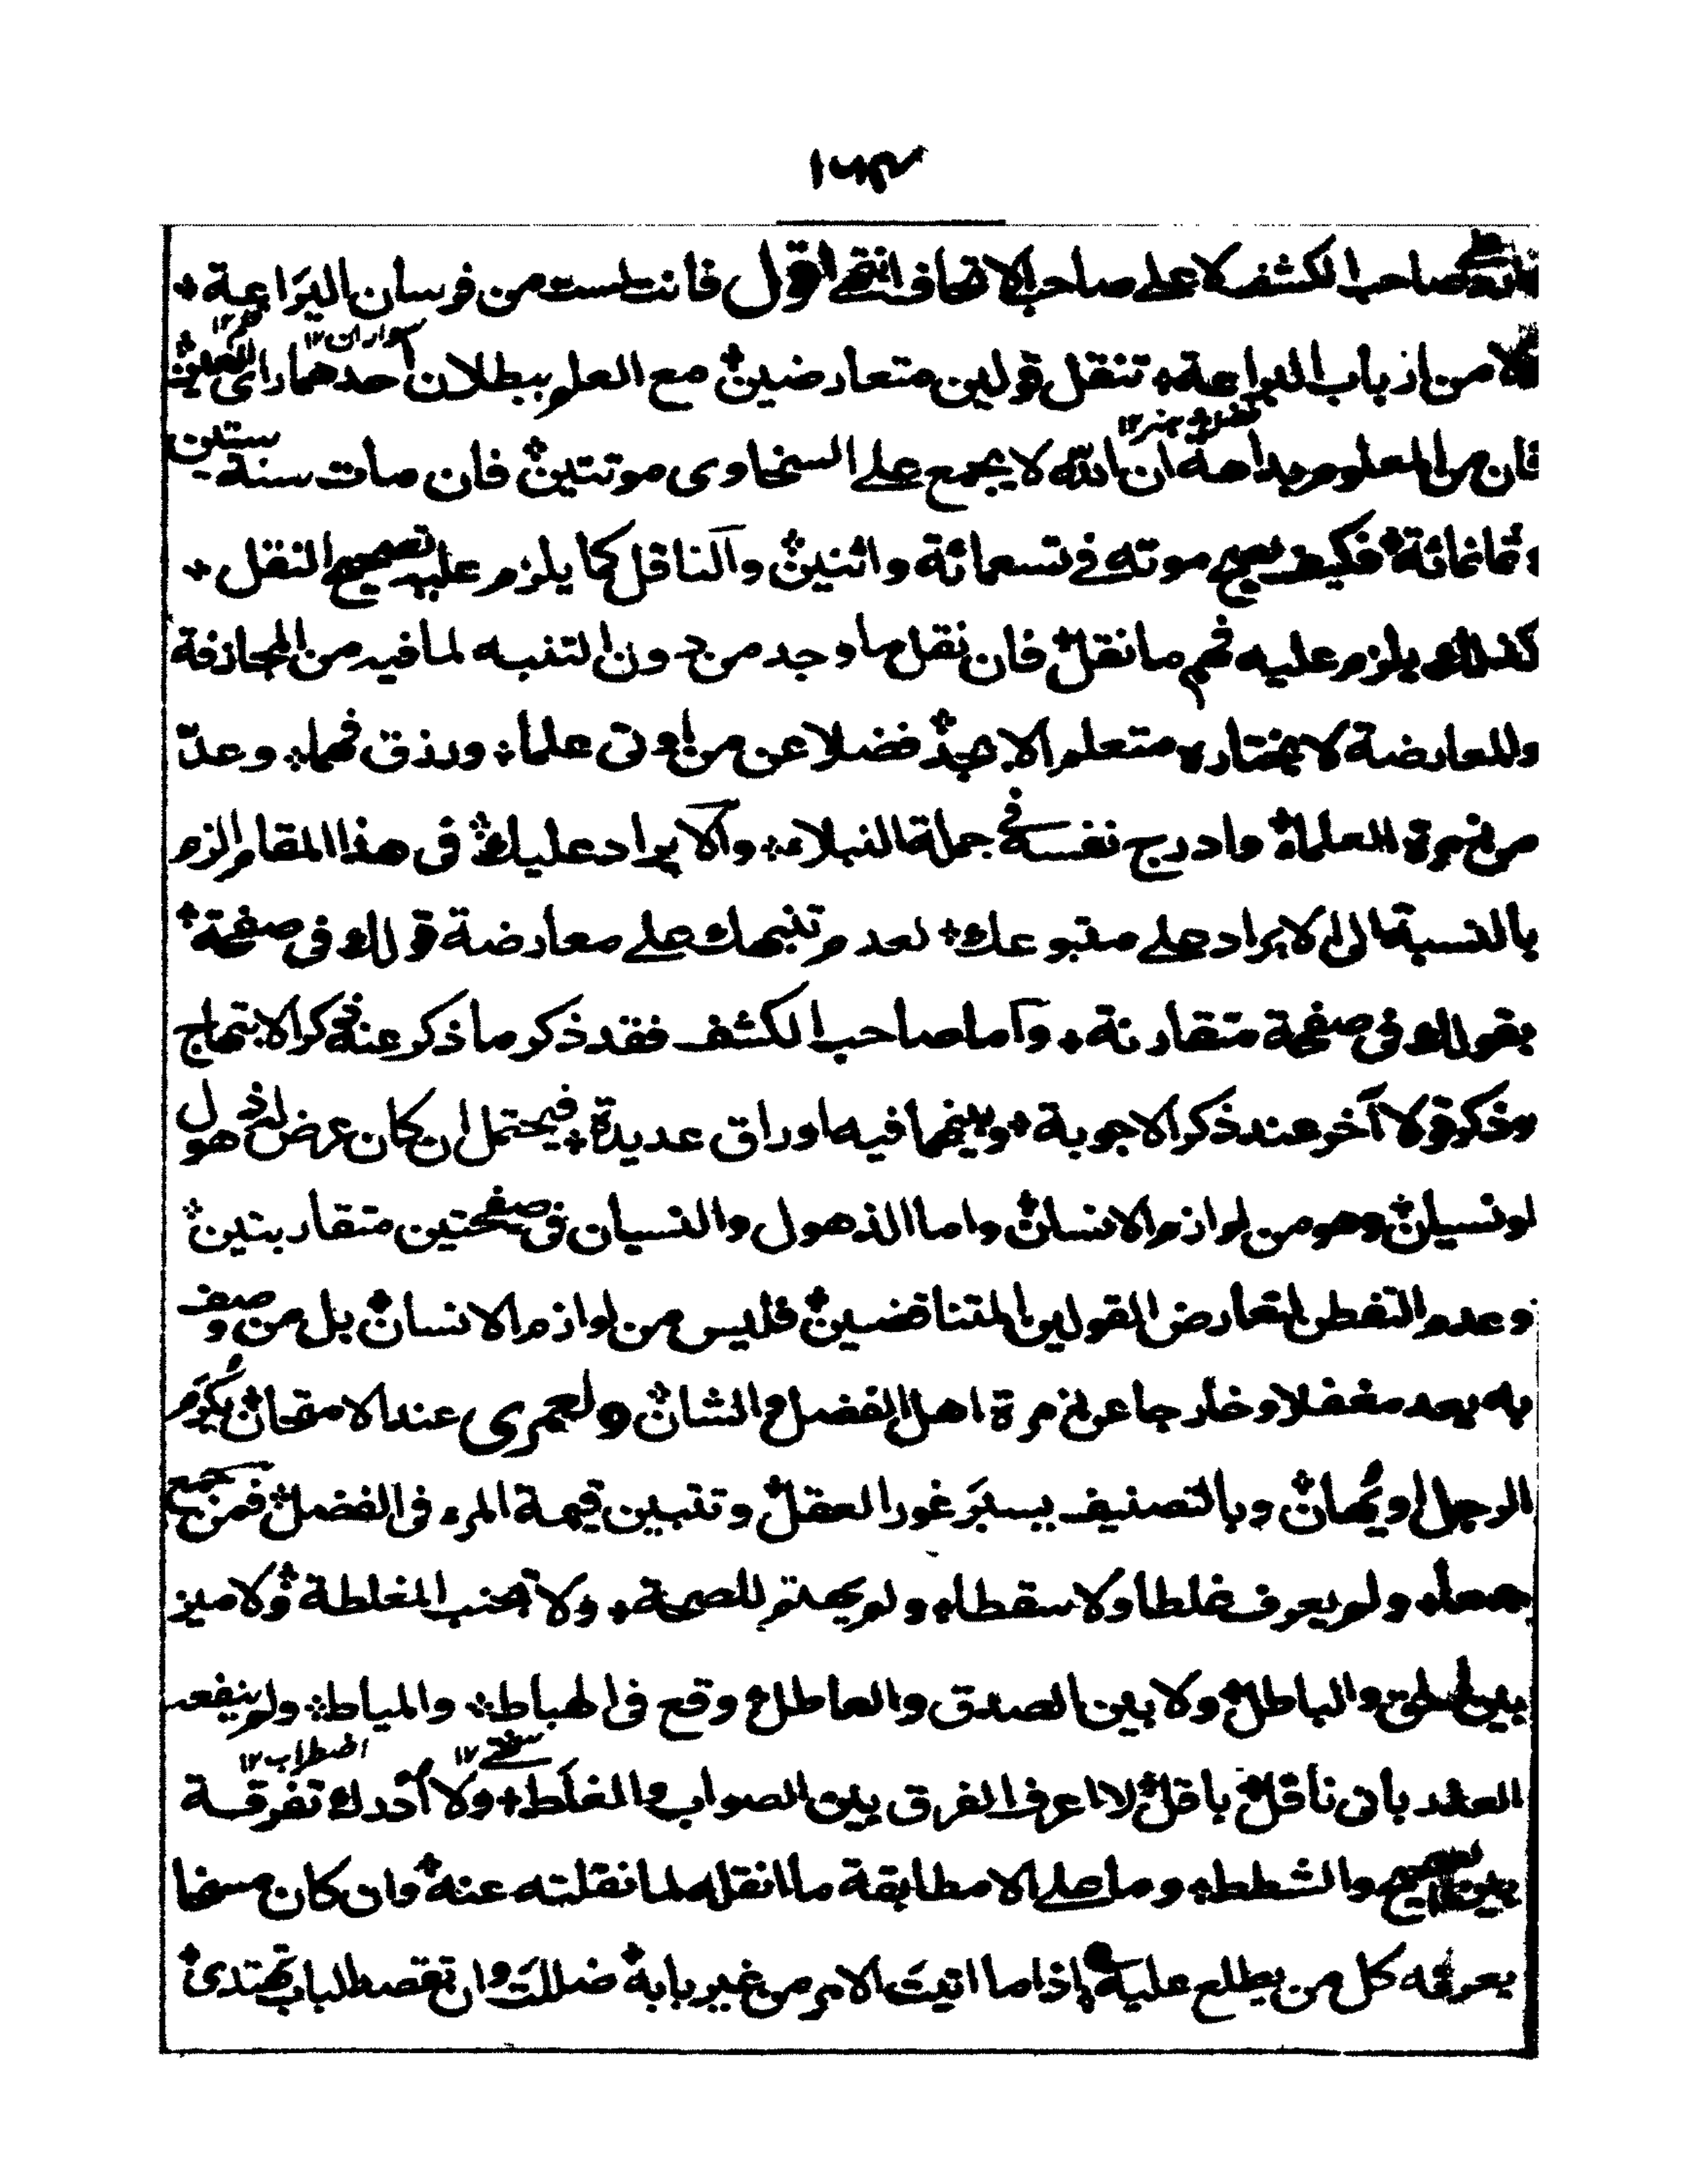 ١٣٤
صاحب الكشف لا على صاحب الاتحاف انتهى اقول فانت لست من فرسان اليَراعة ÷
سواران ١٢
ولا من ارباب البراعة ÷ تنقل قولين متعارضين ÷ مع العلم ببطلان احدهما راى
فان من المعلوم بداهة ان الله لا يجمع على السخاوى موتتين ÷ فان مات سنة ستين
وثمانمائة ÷ فكيف يصح موته فى تسعمائة واثنين ÷ والناقل كما يلزم عليه تصحيح النقل ÷
كذلك يلزم عليه فهم ما نقل ÷ فان نقل ما وجد من دون التنبه لما فيه من المجازفة
والمعارضة لا يختاره متعلم الابجد ÷ فضلا عن من اوتى علما ÷ ورزق فهما ÷ وعدّ
من زمرة العلماء ÷ وادرج نفسه فى جملة النبلاء ÷ والايراد عليك ÷ فى هذا المقام الزم
بالنسبة الى الايراد على متبوعك ÷ لعدم تنبهك على معارضة قولك فى صفحة ÷
بقولك فى صفحة متقارنة ÷ واما صاحب الكشف فقد ذكر ما ذكر عند ذكر الابتهاج
وذكر قولا آخر عند ذكر الاجوبة ÷ وبينهما فيه اوراق عديدة ÷ فيحتمل ان كان عرض له ذهول
او نسيان ÷ وهو من لوازم الانسان ÷ واما الذهول والنسيان فى صفحتين متقاربتين ÷
وعدم التفطن لتعارض القولين المتناقضين ÷ فليس من لوازم الانسان ÷ بل من وصف
به يعد مغفلا وخارجا عن زمرة اهل الفضل والشان ÷ ولعمرى عند الامتحان ÷ يُكرَم
الرجل او يُهان ÷ وبالتصنيف يسبَر غور العقل ÷ وتتبين قيمة المرء فى الفضل ÷ فمن جمع
جمعا ÷ ولم يعرف غلطا ولا سقطا ÷ ولم يهتم للصحة ÷ ولا تجنب المغلطة ÷ ولا ميز
بين الحق والباطل ÷ ولا بين الصدق والعاطل ÷ وقع فى الهباط ÷ والمياط ÷ ولم ينفعه
سختى ١٢ اضطراب ١٢
العذر بانى ناقل ÷ باقل ÷ لا اعرف الفرق بين الصواب والغلَط ÷ ولا أدرك تفرقة
بين الصحيح والشطط ÷ وما على الا مطابقة ما انقله لما نقلته عنه ÷ وان كان مسخا
يعرفه كل من يطلع عليه ÷ إذا ما اتيتَ الامر من غير بابه ÷ ضللتَ وان تقصد الباب تهتدى ÷